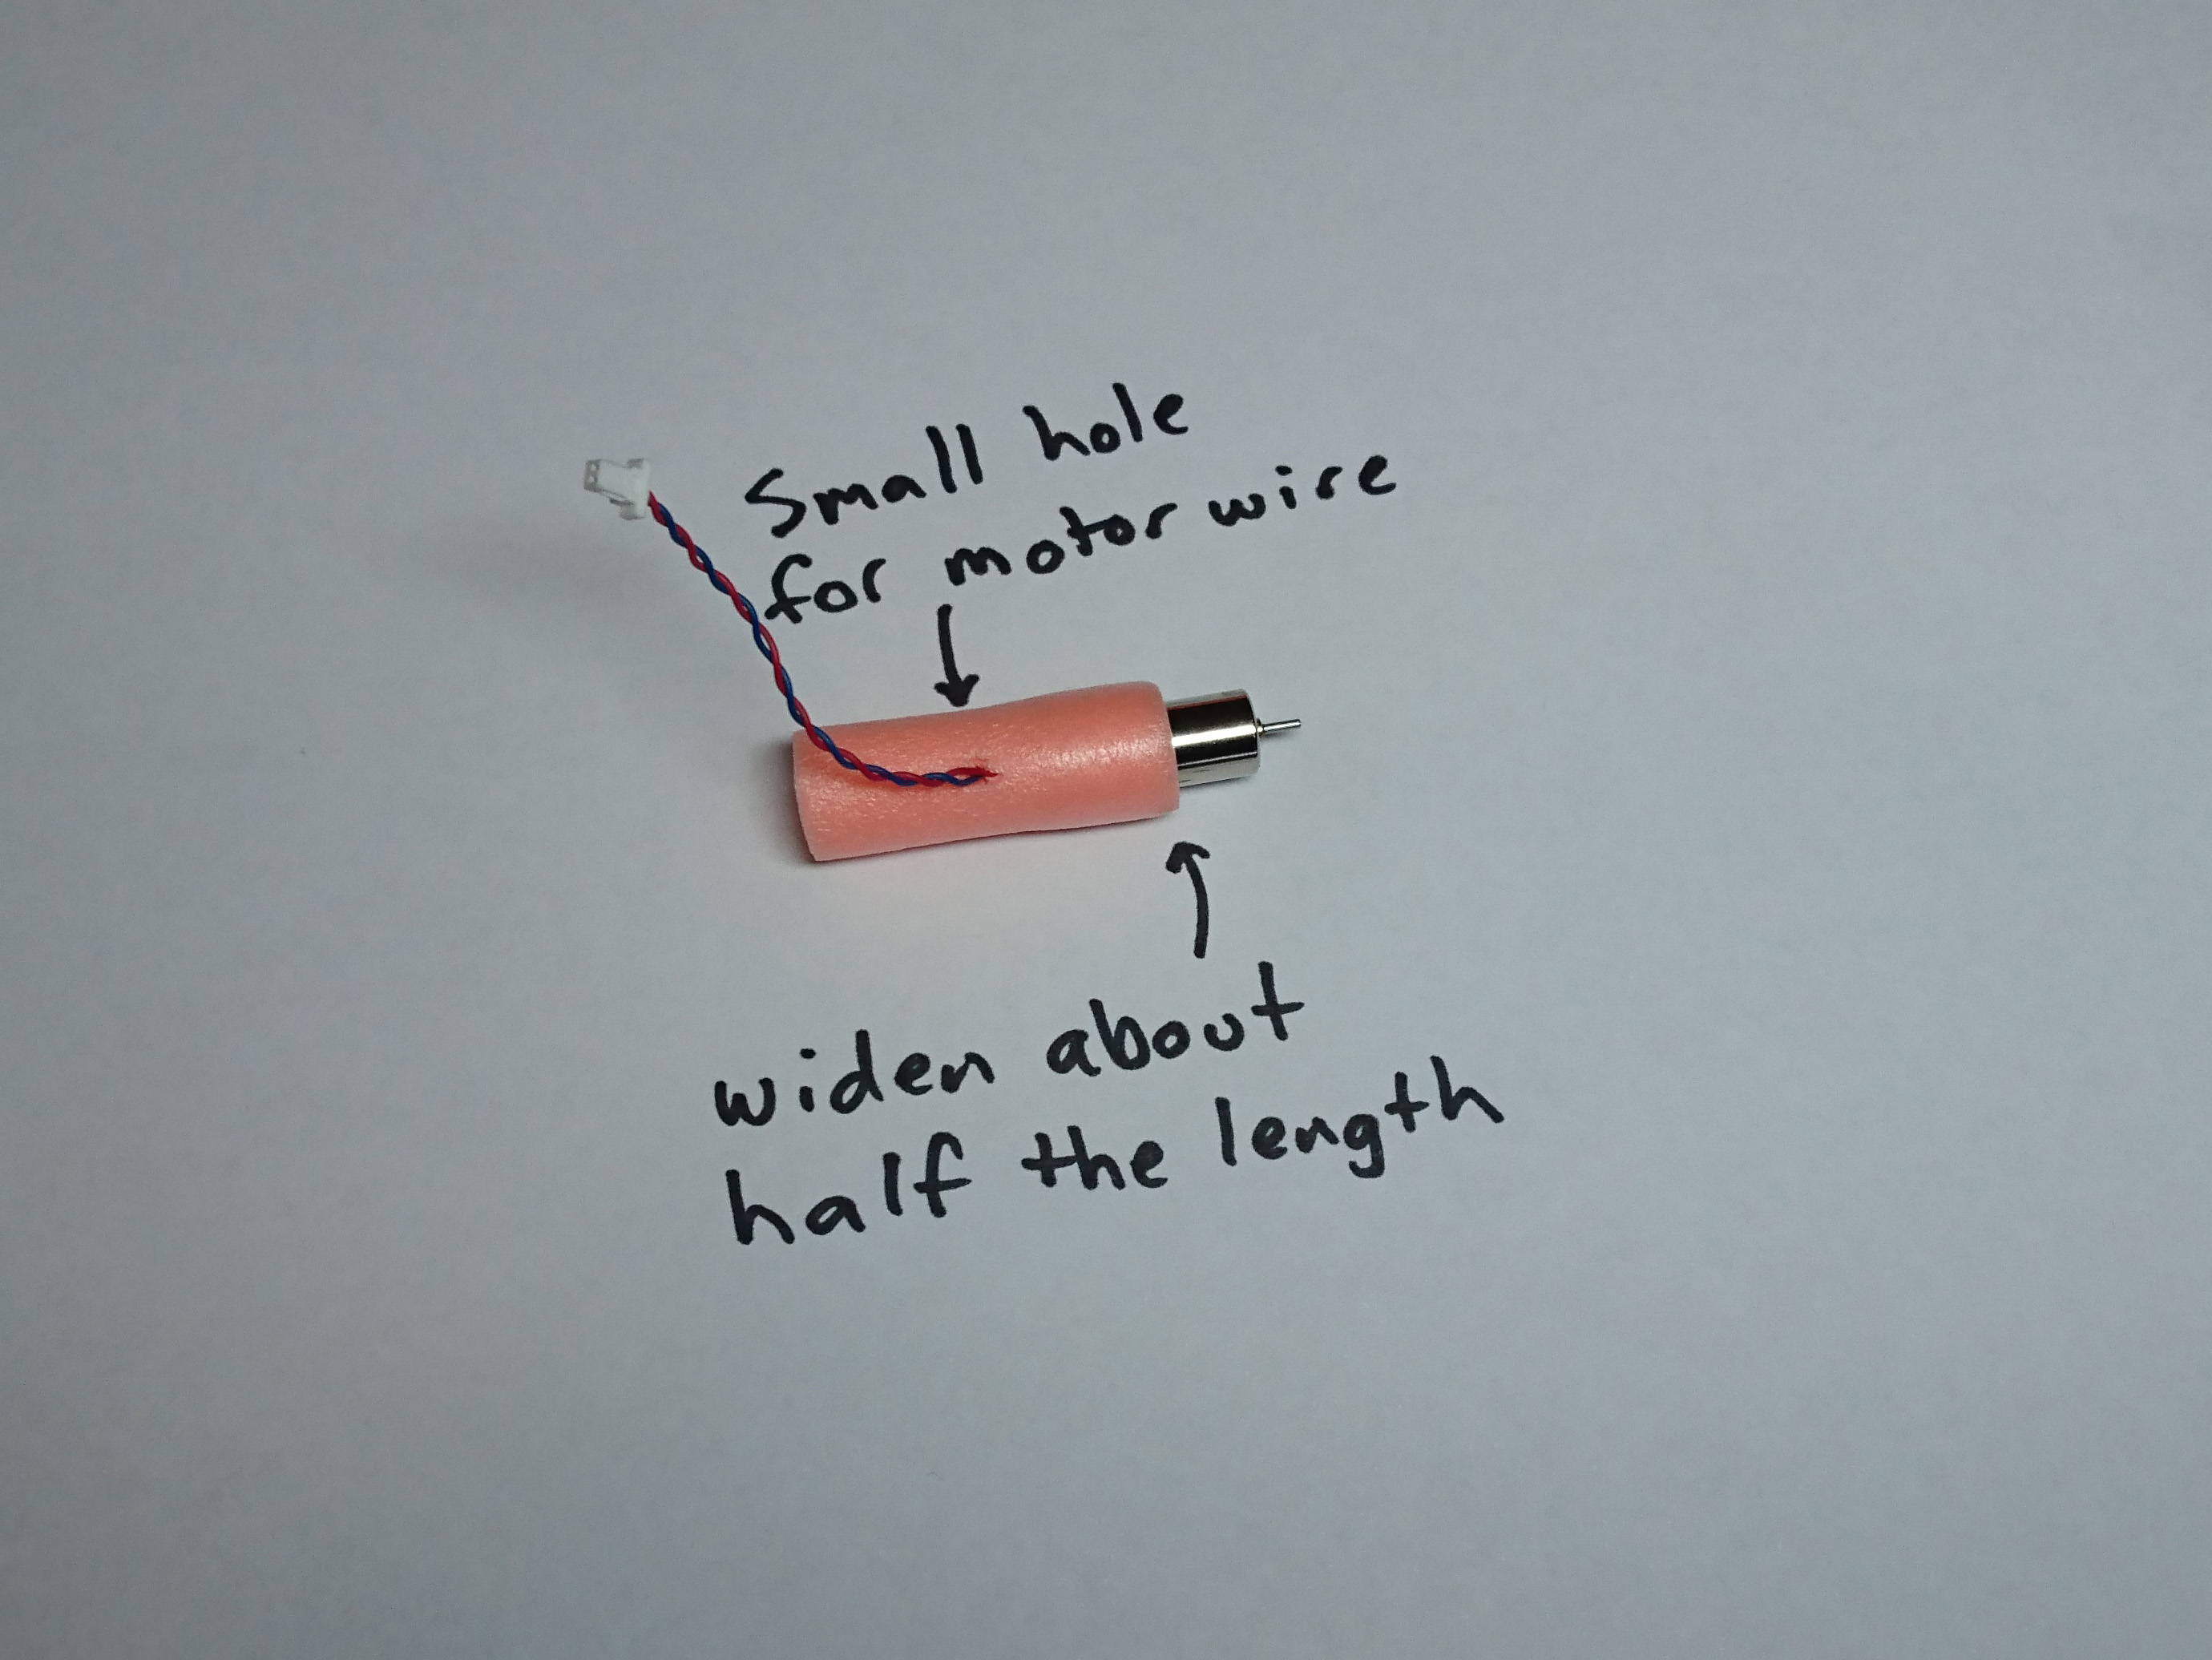 Small hole
for motor wire
widen about
half the length